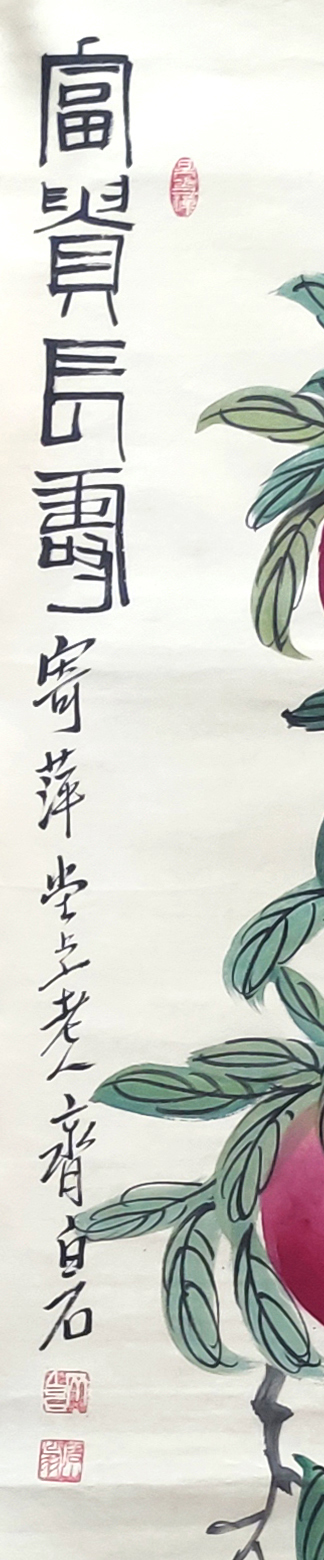 富貴長壽寄萍堂上老人齊白石